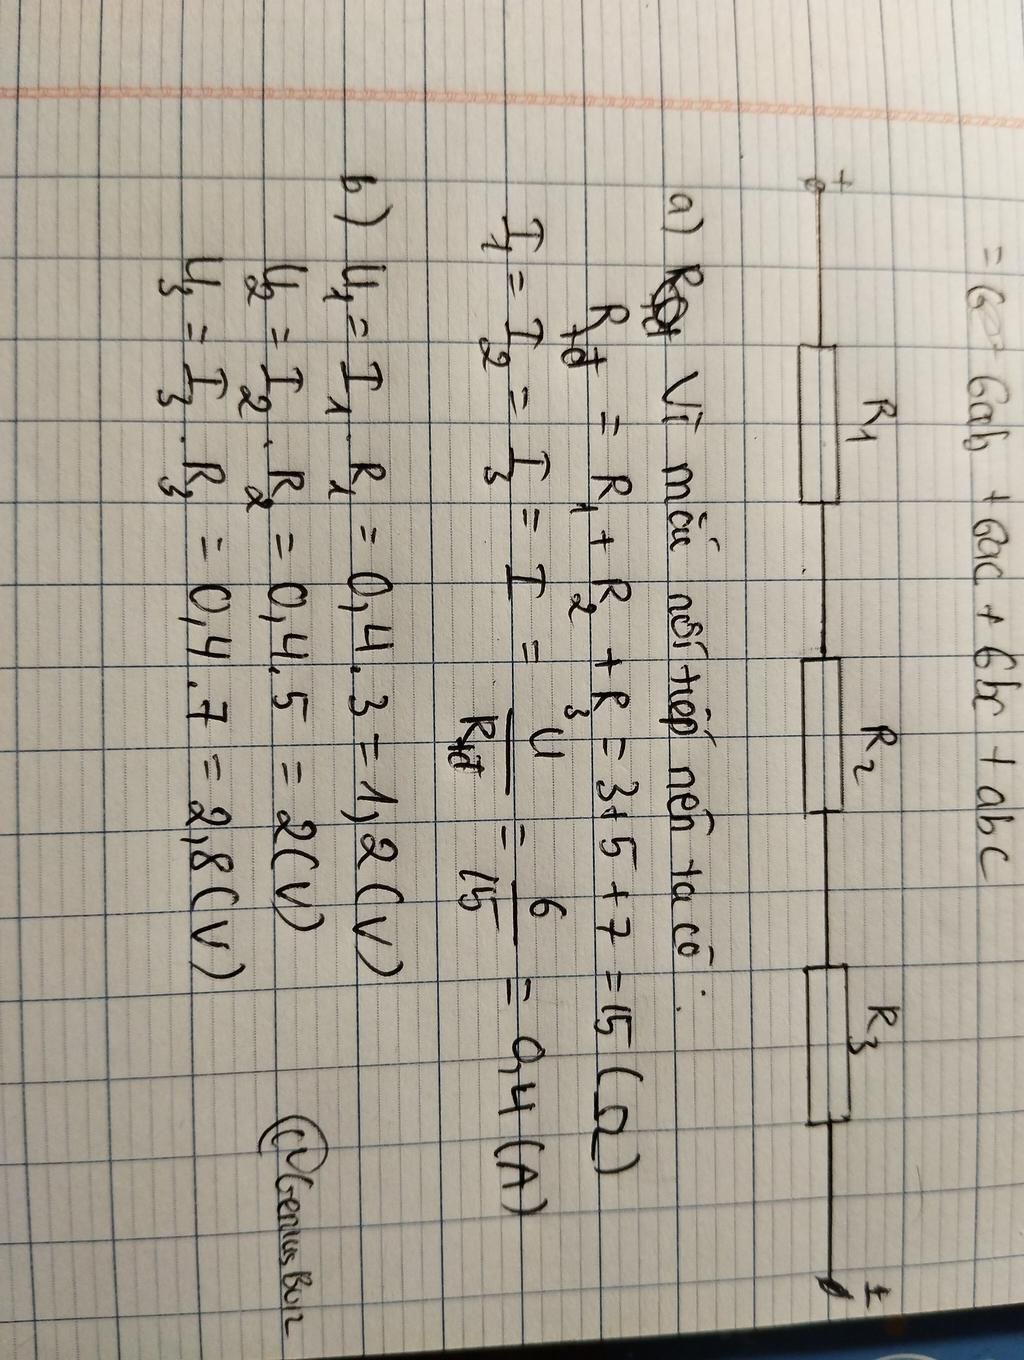 = 6ab + 6ac + 6bc + abc
+ R1 R2 R3
a) Vì mắc nối tiếp nên ta có:
Rtđ = R1 + R2 + R3 = 3+5+7 = 15 (Ω)
I1 = I2 = I3 = I = U/Rtđ = 6/15 = 0,4 (A)
b) U1 = I1 . R1 = 0,4 . 3 = 1,2 (V)
U2 = I2 . R2 = 0,4 . 5 = 2 (V)
U3 = I3 . R3 = 0,4 . 7 = 2,8 (V)